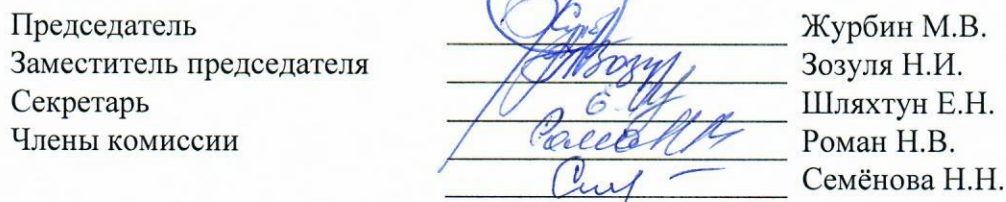 Председатель Журбин М.В.
Заместитель председателя Зозуля Н.И.
Секретарь Шляхтун Е.Н.
Члены комиссии Роман Н.В.
Семёнова Н.Н.